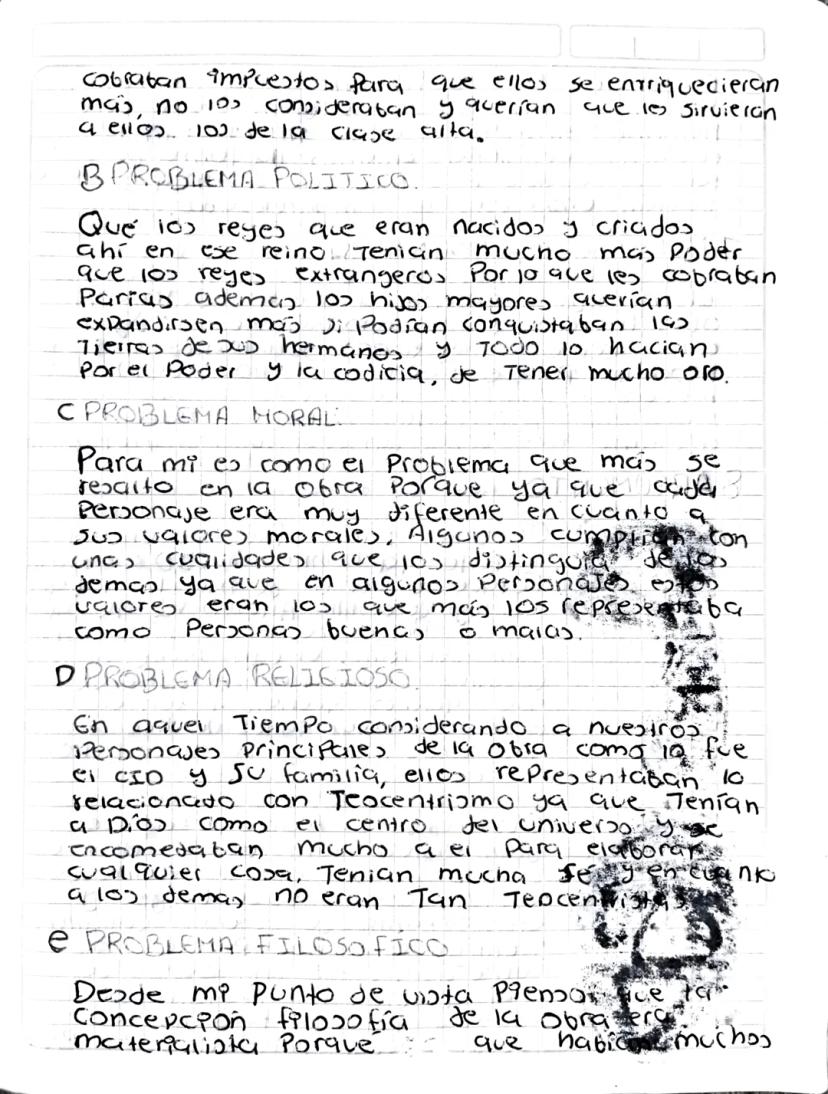 cobraban impuestos para que ellos se enrriquecieran
mas, no los consideraban y querían que les sirvieran
a ellos los de la clase alta.
B PROBLEMA POLITICO.
Que los reyes que eran nacidos y criados
ahí en ese reino Tenian mucho mas poder
que los reyes extrangeros Por lo que les cobraban
Parias ademas los hijos mayores querían
expandirsen mas si Podían conquistaban las
Tierras de sus hermanos y Todo lo hacian
Por el Poder y la codicia, de Tener mucho oro.
C PROBLEMA MORAL.
Para mi es como el Problema que mas se
resalto en la obra Porque ya que cada
Personaje era muy diferente en cuanto a
sus valores morales, Algunos cumplian con
unas cualidades que los distinguia de los
demas ya que en algunos Personajes estos
valores eran los que mas los representaba
como Personas buenas o malas.
D PROBLEMA RELIGIOSO
En aquel Tiempo considerando a nuestros
Personajes principales de la obra como lo fue
el CID y su familia, ellos representaban lo
relacionado con Teocentrismo ya que Tenían
a Dios como el centro del universo y se
encomedaban mucho a el Para elaborar
cualquier cosa, Tenian mucha fe y en cuanto
a los demas no eran Tan Teocentristas
e PROBLEMA FILOSOFICO
Desde mi punto de vista Pienso que la
concepcion filosofía de la obra era
materialista Porque que habian muchos